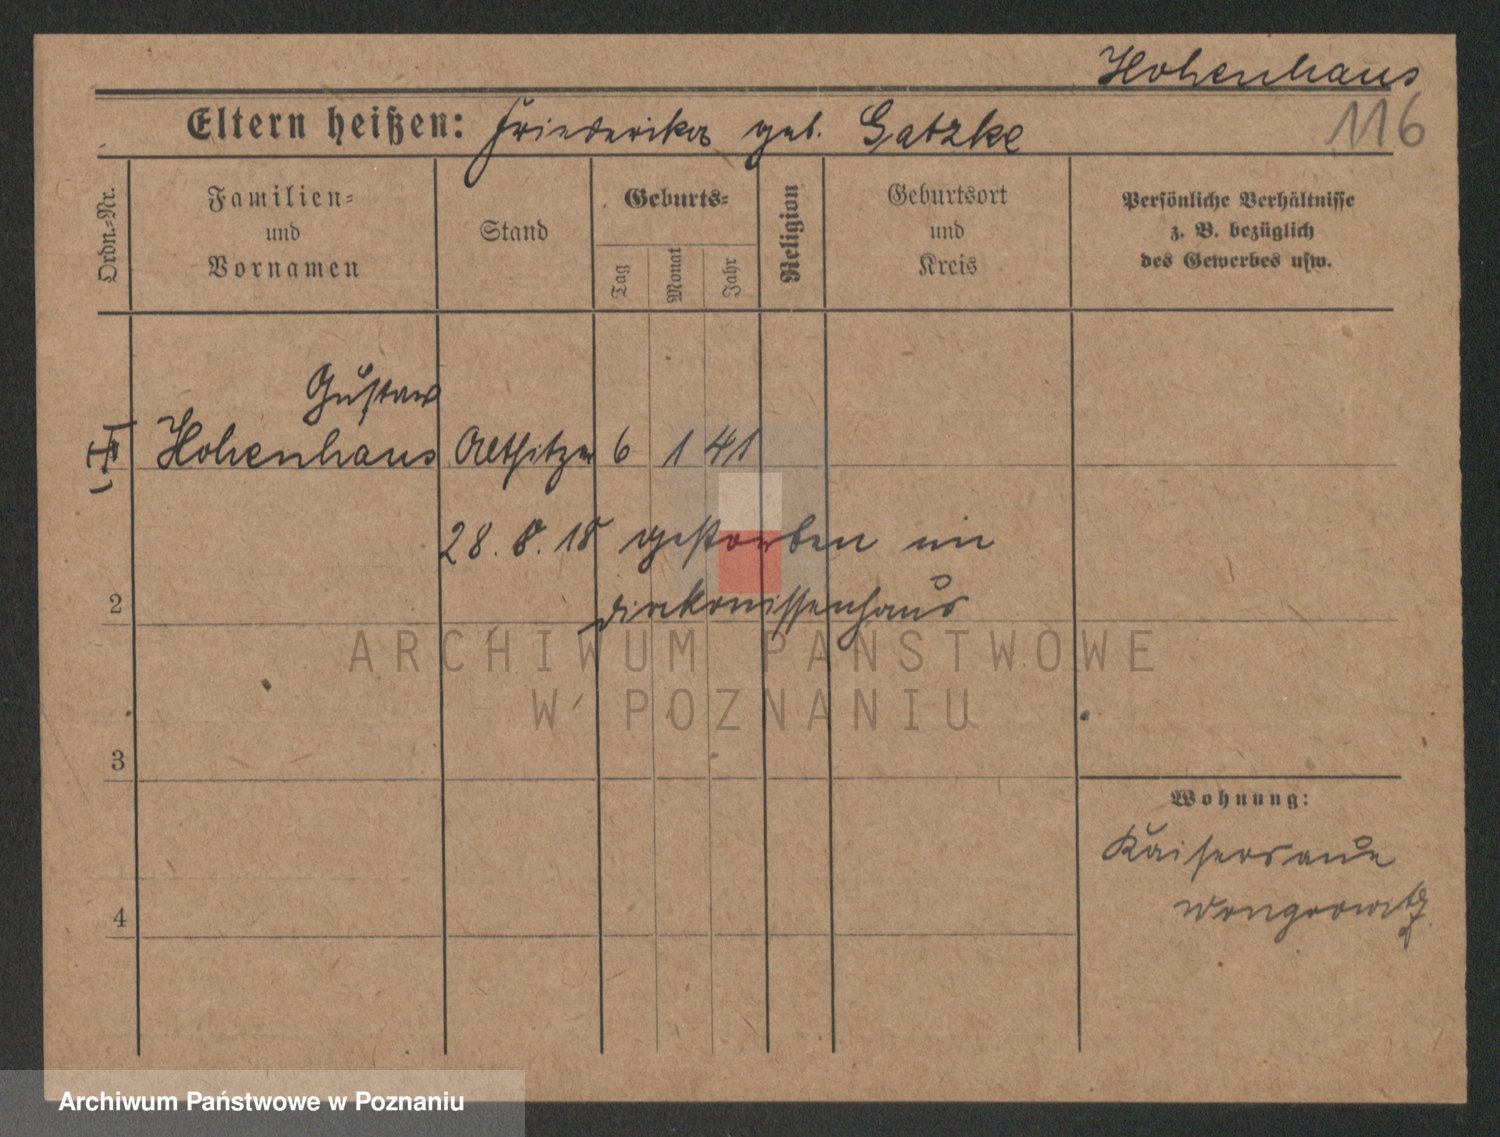 Hohenhaus
116
Eltern heißen: Friederika geb. Gatzke
Ordn.=Nr.
Familien=
und
Vornamen
Stand
Geburts=
Tag
Monat
Jahr
Religion
Geburtsort
und
Kreis
Persönliche Verhältnisse
z. B. bezüglich
des Gewerbes usw.
Gustav
Hohenhaus Altsitzer 6 1 41
28. 8. 18 gestorben im
Diakonissenhaus
2
3
4
Wohnung:
Kaisersaue
Wongrowitz
ARCHIWUM PAŃSTWOWE
W POZNANIU
Archiwum Państwowe w Poznaniu